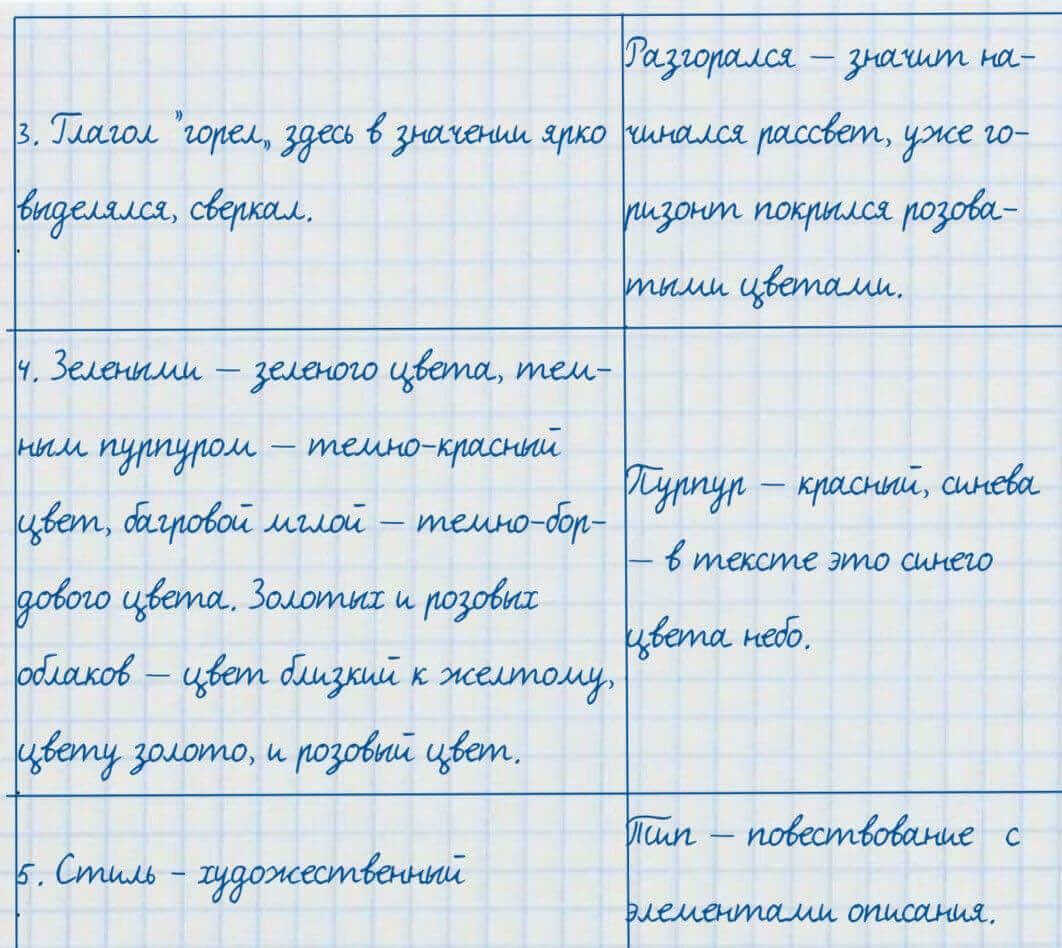 3. Глагол "горел„ здесь в значении ярко
выделялся, сверкал.
Разгорался — значит на-
чинался рассвет, уже го-
ризонт покрылся розова-
тыми цветами.
4. Зелеными — зеленого цвета, тем-
ным пурпуром — темно-красный
цвет, багровой мглой — темно-бор-
дового цвета. Золотых и розовых
облаков — цвет близкий к желтому,
цвету золото, и розовый цвет.
Пурпур — красный, синева
— в тексте это синего
цвета небо.
5. Стиль - художественный
Тип — повествование с
элементами описания.